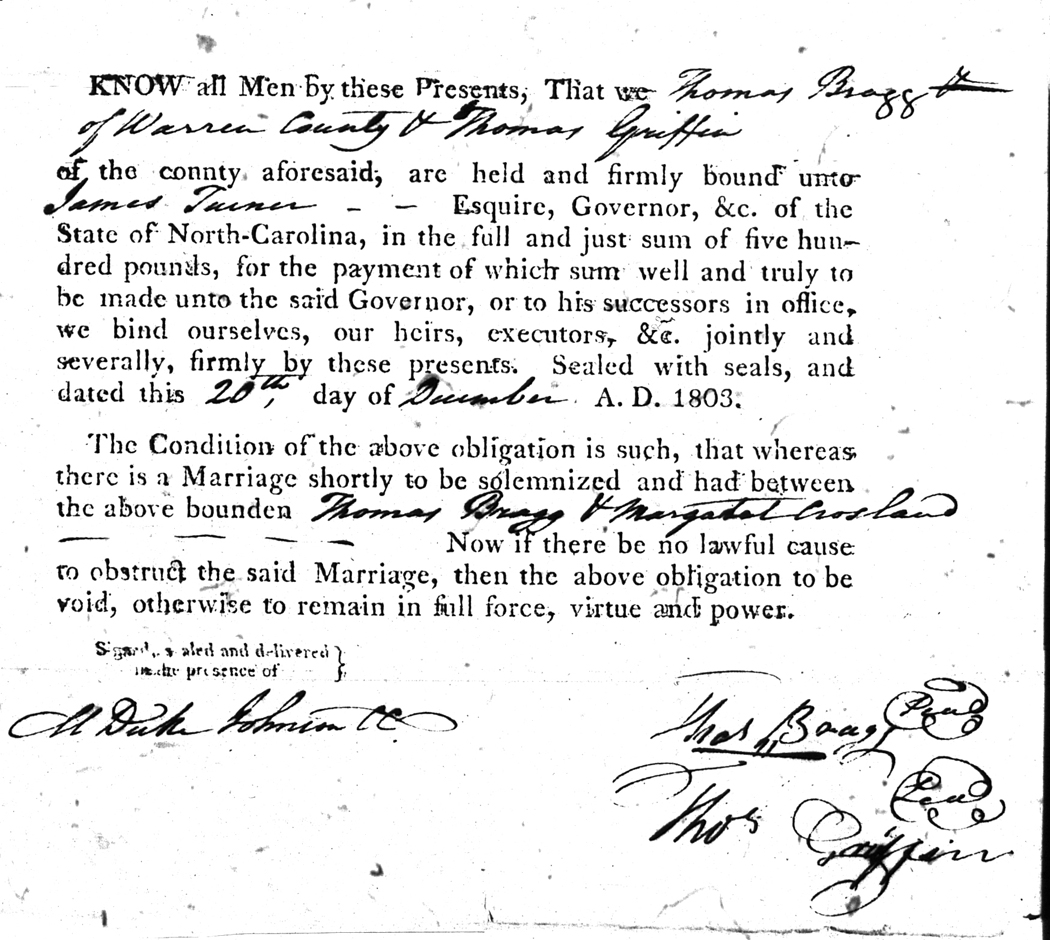 KNOW all Men by these Presents, That we Thomas Bragg &
of Warren County & Thomas Griffin
of the county aforesaid, are held and firmly bound unto
James Turner - - Esquire, Governor, &c. of the
State of North-Carolina, in the full and just sum of five hun-
dred pounds, for the payment of which sum well and truly to
be made unto the said Governor, or to his successors in office,
we bind ourselves, our heirs, executors, &c. jointly and
severally, firmly by these presents. Sealed with seals, and
dated this 20th, day of December A. D. 1803.
The Condition of the above obligation is such, that whereas
there is a Marriage shortly to be solemnized and had between
the above bounden Thomas Bragg & Margaret Crosland
— — — — Now if there be no lawful cause
to obstruct the said Marriage, then the above obligation to be
void, otherwise to remain in full force, virtue and power.
Signed, sealed and delivered }
in the presence of }
M Duke Johnson CC
Thos Bragg (Seal)
Thos Griffin (Seal)